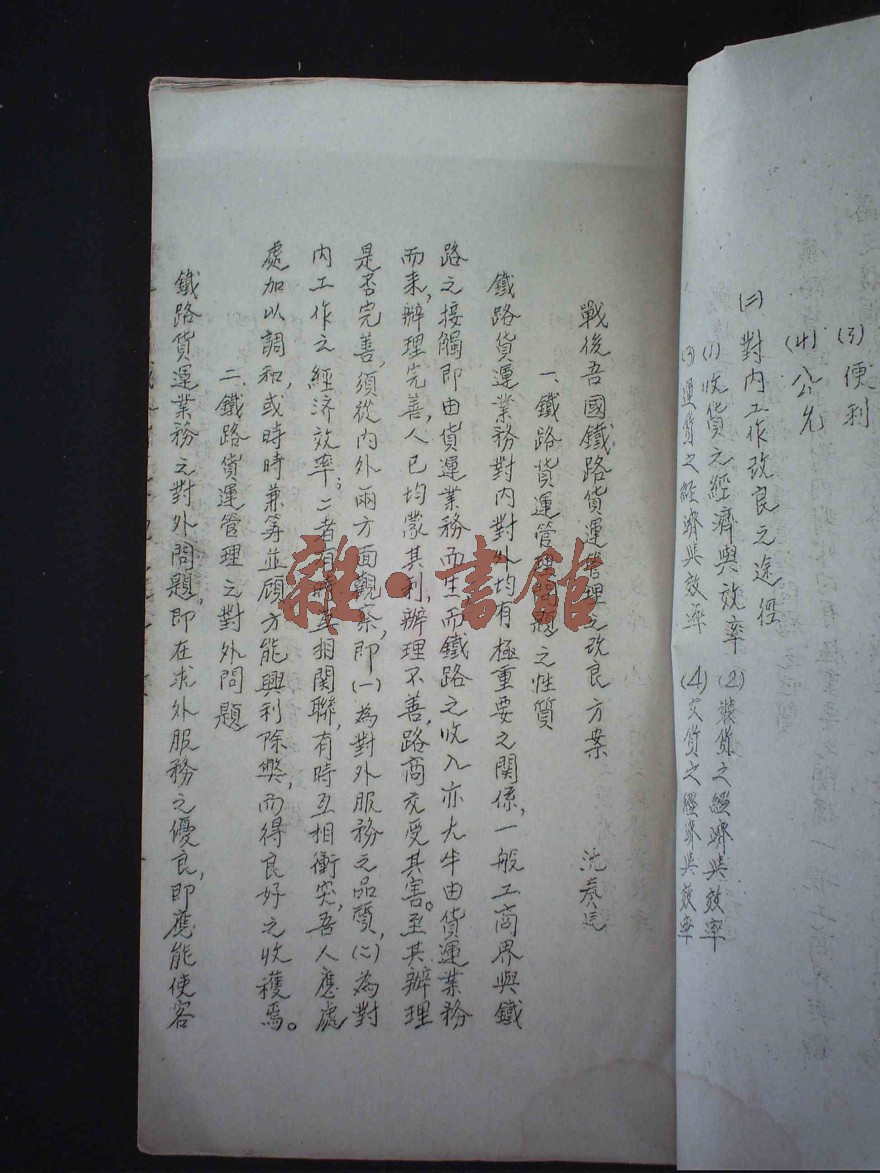 (3) 便利
(4) 公允
(二) 對內工作改良之途徑
(1) 收貨之經濟與效率 (2) 裝貨之經濟與效率
(3) 運貨之經濟與效率 (4) 交貨之經濟與效率
戰後吾國鐵路貨運管理之改良方案 沈奏廷
一、鐵路貨運管理問題之性質
鐵路貨運業務對內對外均有極重要之關係，一般工商界與鐵
路之接觸即由貨運業務而生而鐵路之收入亦大半由貨運業務
而來，辦理完善，人已均蒙其利，辦理不善，路商交受其害。至其辦理
是否完善，須從內外兩方面觀察，即(一)為對外服務之品質，(二)為對
內工作之經济效率；二者有時互相関聯，有時互相衝突，吾人應處
處加以調和，或時時兼籌並顧方能興利除弊，而得良好之收穫焉。
二、鐵路貨運管理之對外問題
鐵路貨運業務之對外問題，即在求外服務之優良，即應能使客
雜·書館